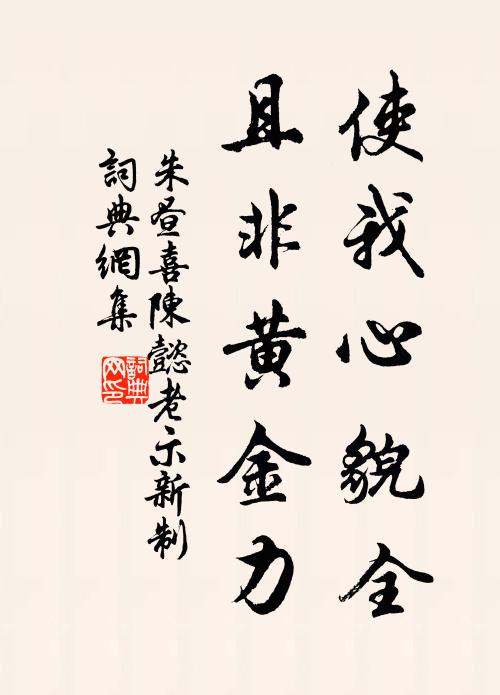 使我心貌全
且非黄金力
朱晝喜陳懿老示新制
詞典網集
詞典
网印